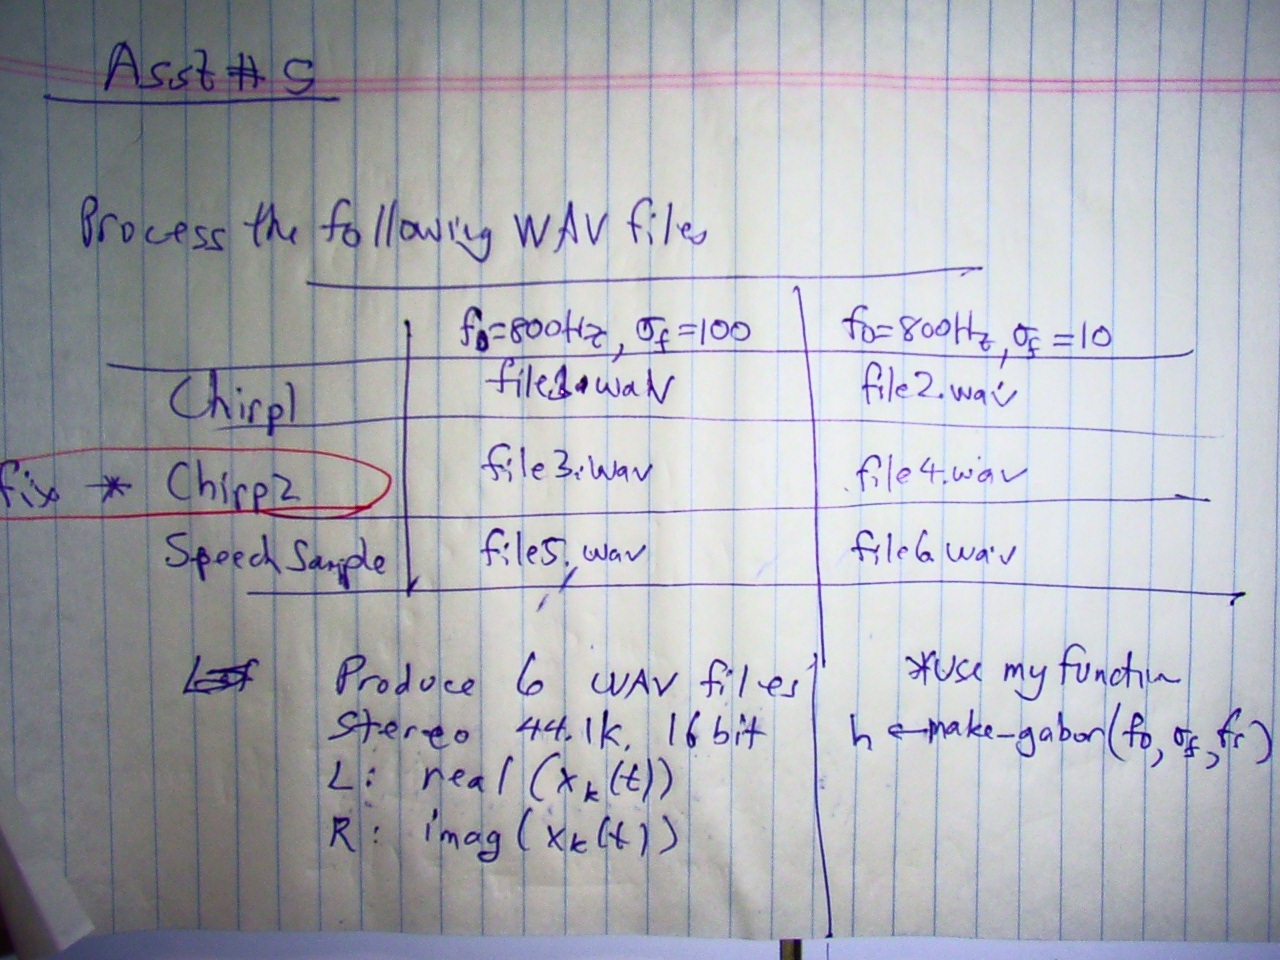 Asst # 5
Process the following WAV files
f0=800Hz, σf=100 f0=800Hz, σf=10
Chirp1 file1.wav file2.wav
fix * Chirp2 file3.wav file4.wav
Speech Sample file5.wav file6.wav
Produce 6 WAV files
Stereo 44.1k, 16 bit
L: real (xk(t))
R: imag (xk(t))
*Use my function
h ← make-gabor(f0, σf, fs)